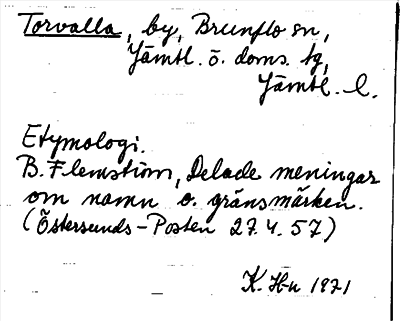 Torvalla, by, Brunflo sn,
Jämtl. ö. doms. tg,
Jämtl. l.
Etymologi.
B. Flemström, Delade meningar
om namn o. gränsmärken.
(Östersunds-Posten 27.4.57)
K. Hn 1971